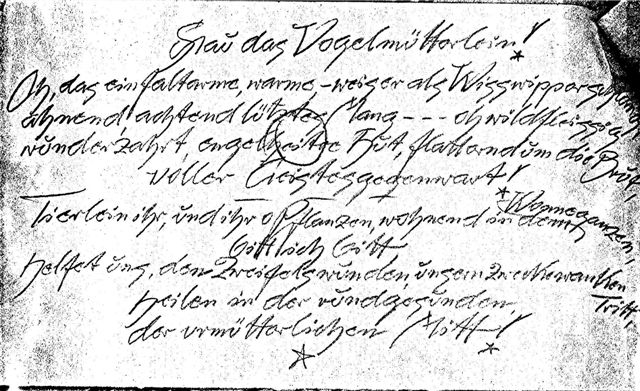 Schau das Vogelmütterlein!
Oh, das einfaltarme, warme, - weiser als
ahnend, achtend --- oh wildfleissig!
wunderzahrt, engelheitre Hut, flatternd um die Brut,
voller Geistesgegenwart!
Tierlein ihr, und ihr o Pflanzen, wohnend in dem Wonneganzen,
Gittlich Gitt
helfet uns, den Zweifelswunden, unsern Tritt,
heilen in der rundgesunden,
der urmütterlichen Mitt!